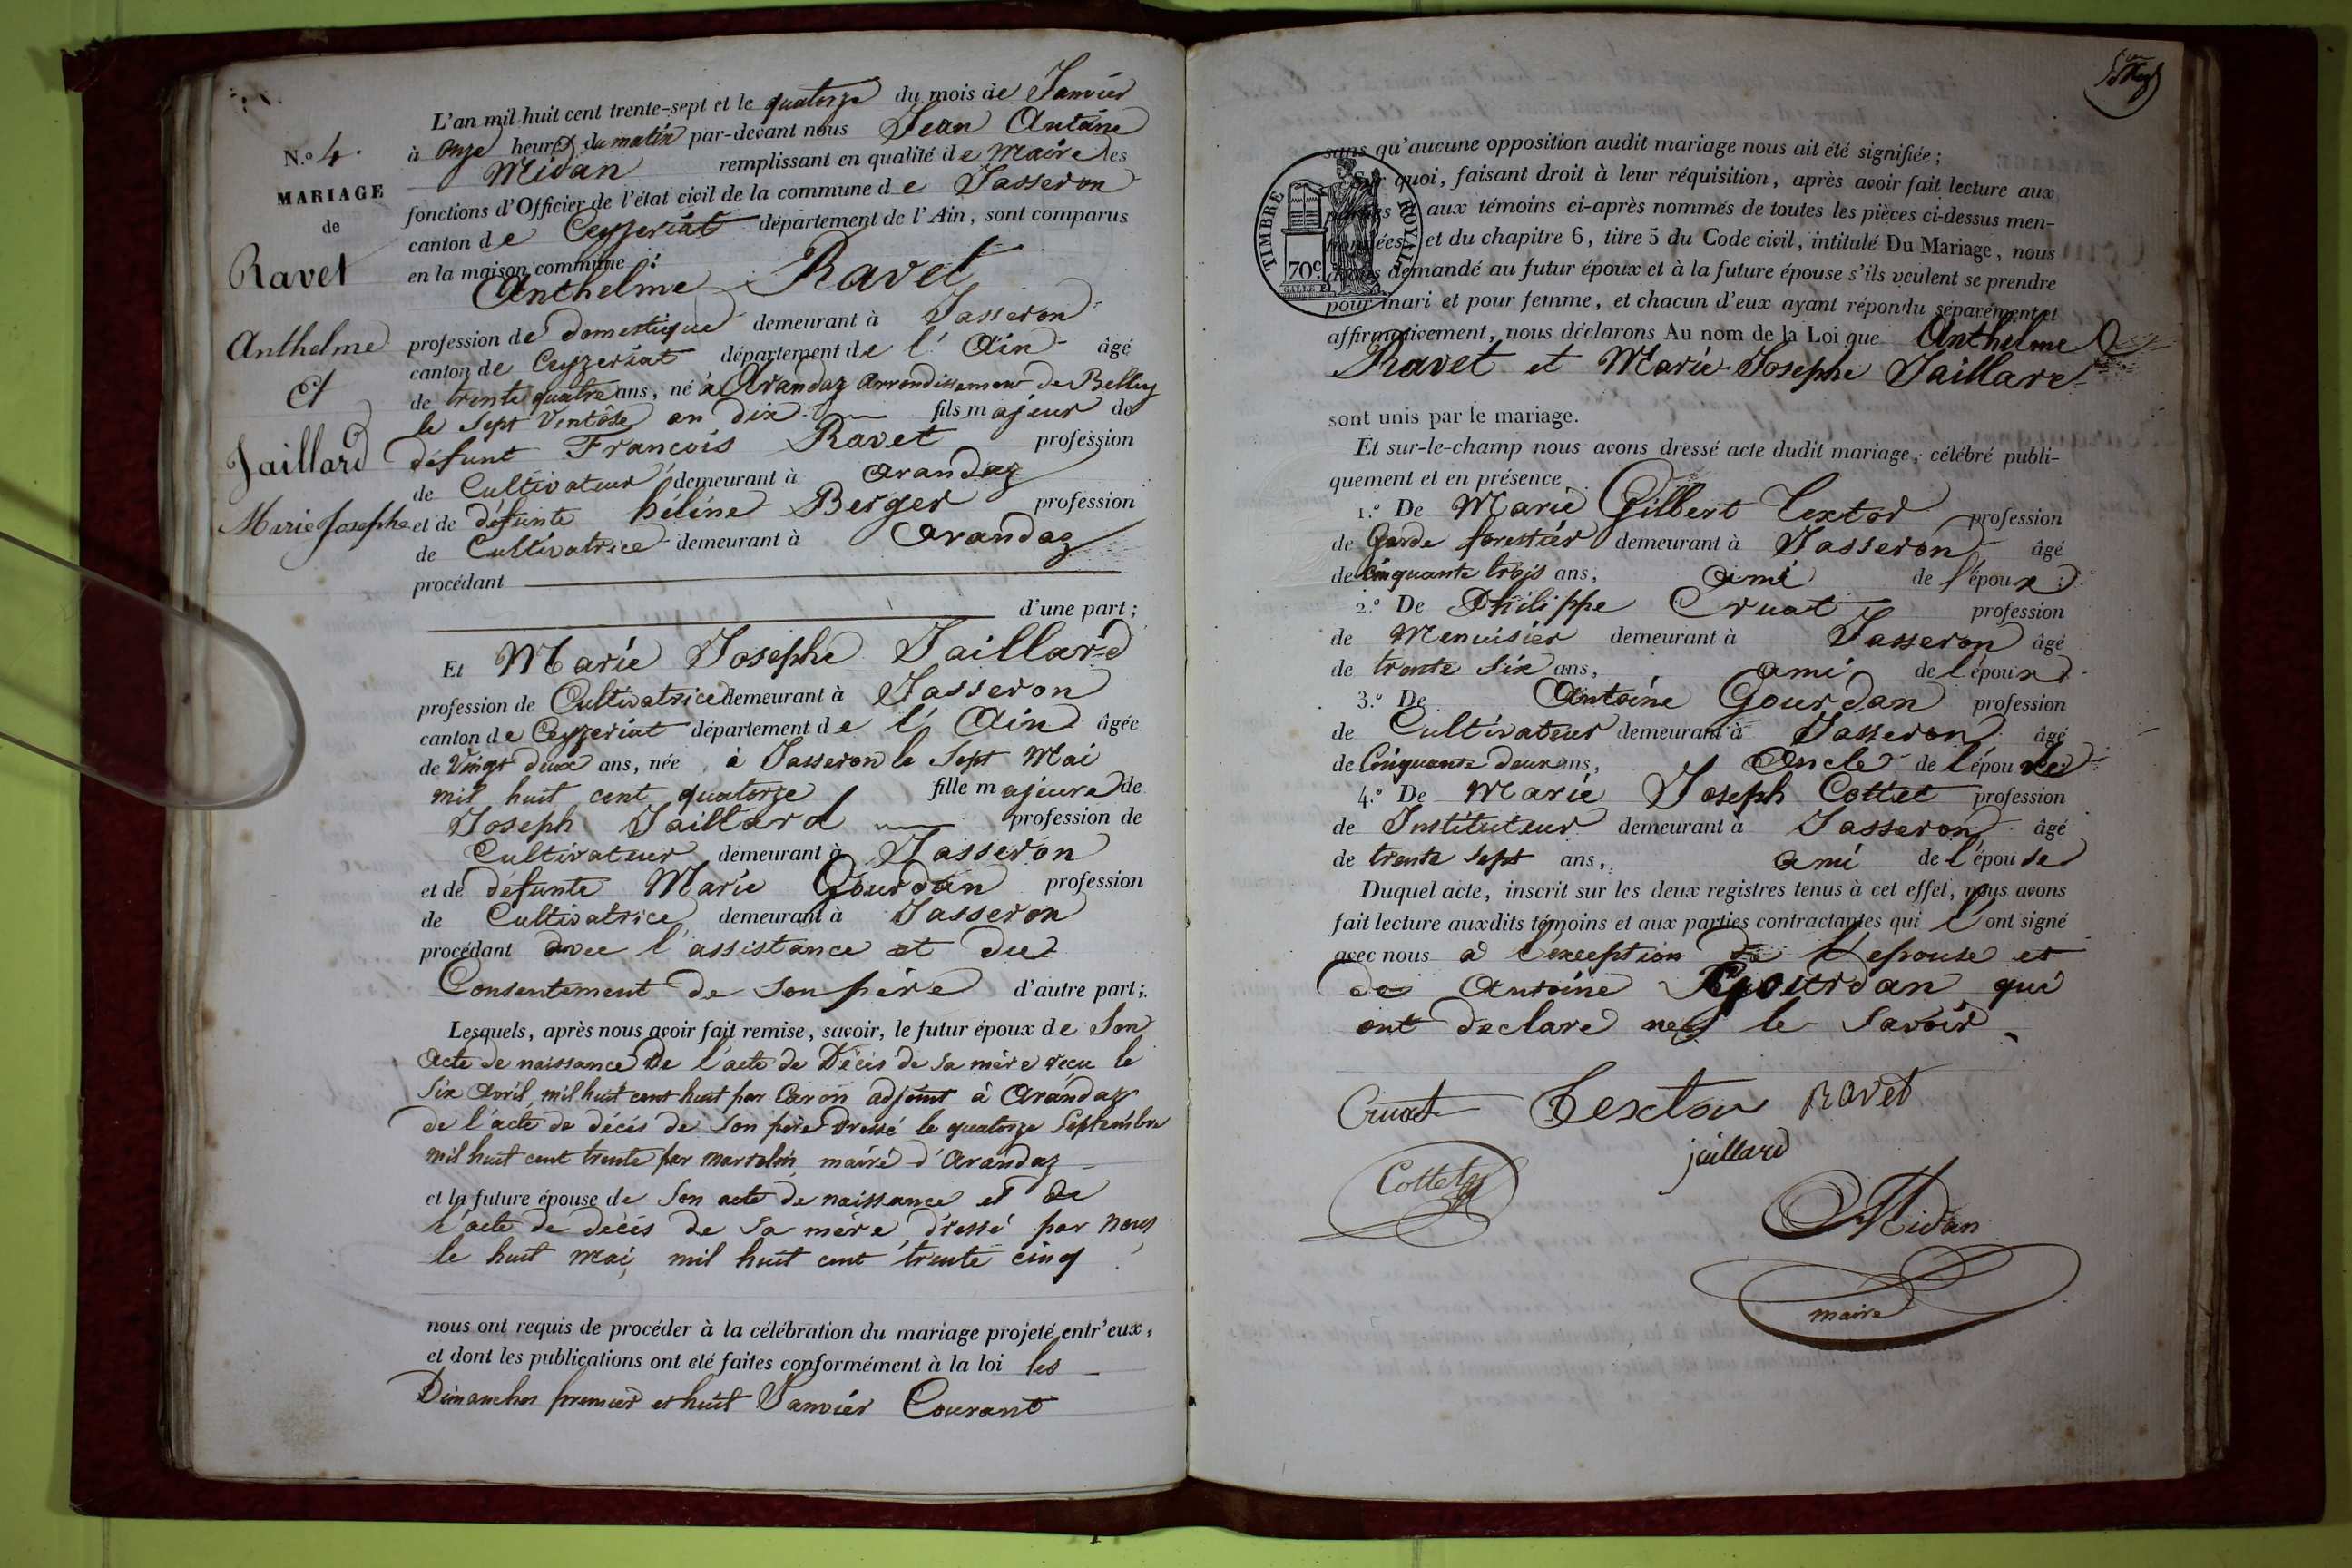 N.º 4.
MARIAGE
de
Ravet
Anthelme
et
Jaillard
Marie Josephe
L'an mil huit cent trente-sept et le quatorze du mois de Janvier
à onze heures du matin par-devant nous Jean Antoine
Midan remplissant en qualité de Maire les
fonctions d'Officier de l'état civil de la commune de Jasseron
canton de Ceyzeriat département de l'Ain, sont comparus
en la maison commune :
Anthelme Ravet
profession de domestique demeurant à Jasseron
canton de Ceyzeriat département de l'Ain âgé
de trente quatre ans, né à Arandaz arrondissement de Belley
le sept Ventôse an dix fils majeur de
défunt François Ravet profession
de Cultivateur demeurant à Arandaz
et de défunte héléne Berger profession
de Cultivatrice demeurant à Arandaz
procédant
d'une part ;
Et Marie Josephe Jaillard
profession de Cultivatrice demeurant à Jasseron
canton de Ceyzeriat département de l'Ain âgée
de Vingt deux ans, née à Jasseron le Sept Mai
mil huit cent quatorze fille majeure de
Joseph Jaillard profession de
Cultivateur demeurant à Jasseron
et de défunte Marie Gourdan profession
de Cultivatrice demeurant à Jasseron
procédant avec l'assistance et du
Consentement de son père d'autre part ;
Lesquels, après nous avoir fait remise, savoir, le futur époux de Son
acte de naissance De l'acte de Décès de sa mère reçu le
six Avril, mil huit cent huit par Caron adjoint à Arandaz
de l'acte de décès de son père dressé le quatorze Septembre
mil huit cent trente par maire d'Arandaz
et la future épouse de Son acte de naissance et de
l'acte de décès de sa mère dressé par nous
le huit mai mil huit cent trente cinq
nous ont requis de procéder à la célébration du mariage projeté entr'eux,
et dont les publications ont été faites conformément à la loi les
Dimanches premier et huit Janvier Courant
TIMBRE ROYAL
70c
sans qu'aucune opposition audit mariage nous ait été signifiée ;
Sur quoi, faisant droit à leur réquisition, après avoir fait lecture aux
parties et aux témoins ci-après nommés de toutes les pièces ci-dessus men-
tionnées, et du chapitre 6, titre 5 du Code civil, intitulé Du Mariage, nous
avons demandé au futur époux et à la future épouse s'ils veulent se prendre
pour mari et pour femme, et chacun d'eux ayant répondu séparément et
affirmativement, nous déclarons Au nom de la Loi que Anthelme
Ravet et Marie Josephe Jaillard
sont unis par le mariage.
Et sur-le-champ nous avons dressé acte dudit mariage, célébré publi-
quement et en présence
1.º De Marie Gilbert Textor profession
de Garde forestier demeurant à Jasseron âgé
de Cinquante trois ans, ami de l'époux
2.º De Philippe Cruat profession
de Menuisier demeurant à Jasseron âgé
de trente six ans, ami de l'époux
3.º De Antoine Gourdan profession
de Cultivateur demeurant à Jasseron âgé
de Cinquante deux ans, Oncle de l'épouse
4.º De Marie Joseph Cottet profession
de Instituteur demeurant à Jasseron âgé
de trente sept ans, ami de l'épouse
Duquel acte, inscrit sur les deux registres tenus à cet effet, nous avons
fait lecture auxdits témoins et aux parties contractantes qui l'ont signé
avec nous à l'exception de l'epouse et
de Antoine Gourdan qui
ont declare ne le Savoir
Cruat Textor Ravet
jaillard
Cottet
Midan
maire